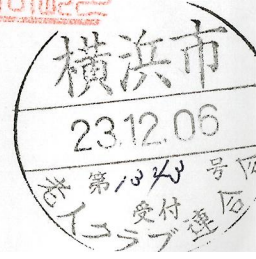 横浜市
23.12.06
第1343号
受付
老イコラブ連合会